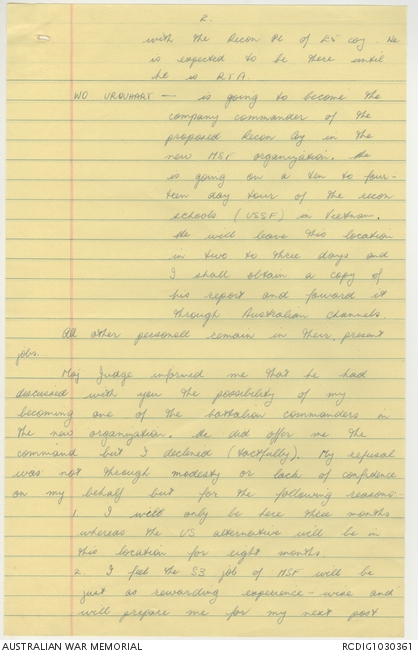 2.
with the Recon Pl of LS coy. He
is expected to be there until
he is RTA.
WO URQUHART — is going to become the
company commander of the
proposed Recon Coy in the
new MSF organization. He
is going on a ten to four-
teen day tour of the recon
schools (USSF) in Vietnam.
He will leave this location
in two to three days and
I shall obtain a copy of
his report and forward it
through Australian channels.
All other personell remain in their present
jobs.
Maj Judge informed me that he had
discussed with you the possibility of my
becoming one of the battalion commanders in
the new organization. He did offer me the
command but I declined (tactfully). My refusal
was not through modesty or lack of confidence
on my behalf but for the following reasons:-
1. I will only be here three months
whereas the US alternative will be in
this location for eight months.
2. I feel the S3 job of MSF will be
just as rewarding experience-wise and
will prepare me for my next post
AUSTRALIAN WAR MEMORIAL
RCDIG1030361